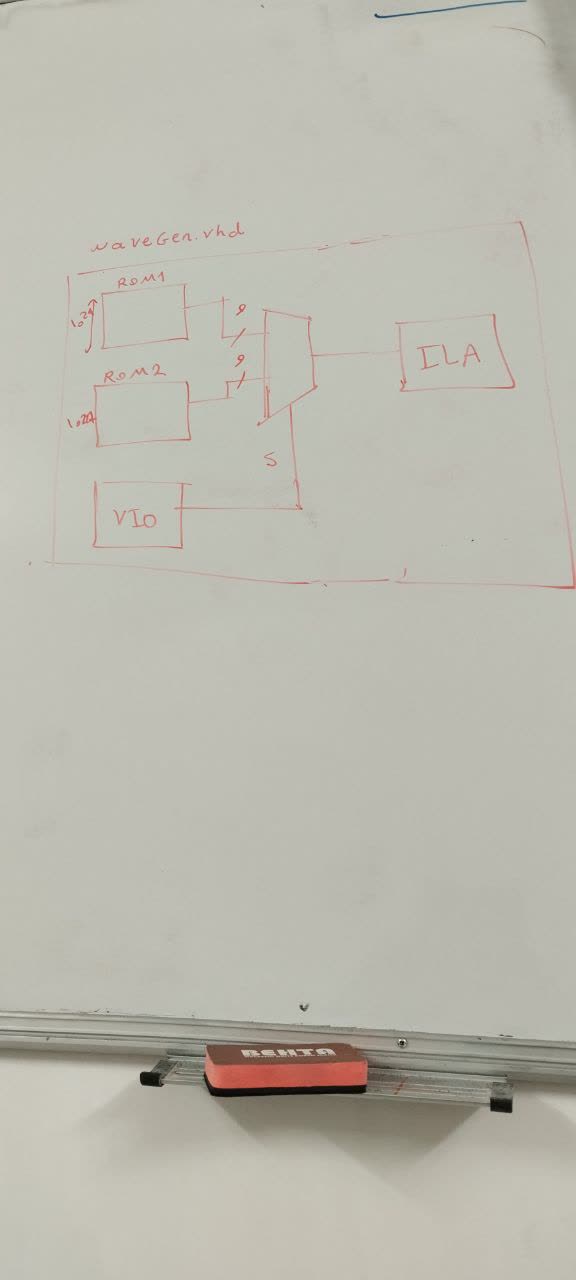 waveGen.vhd
ROM1
1024
9
ROM2
1024
9
ILA
S
VIO
BEHTA